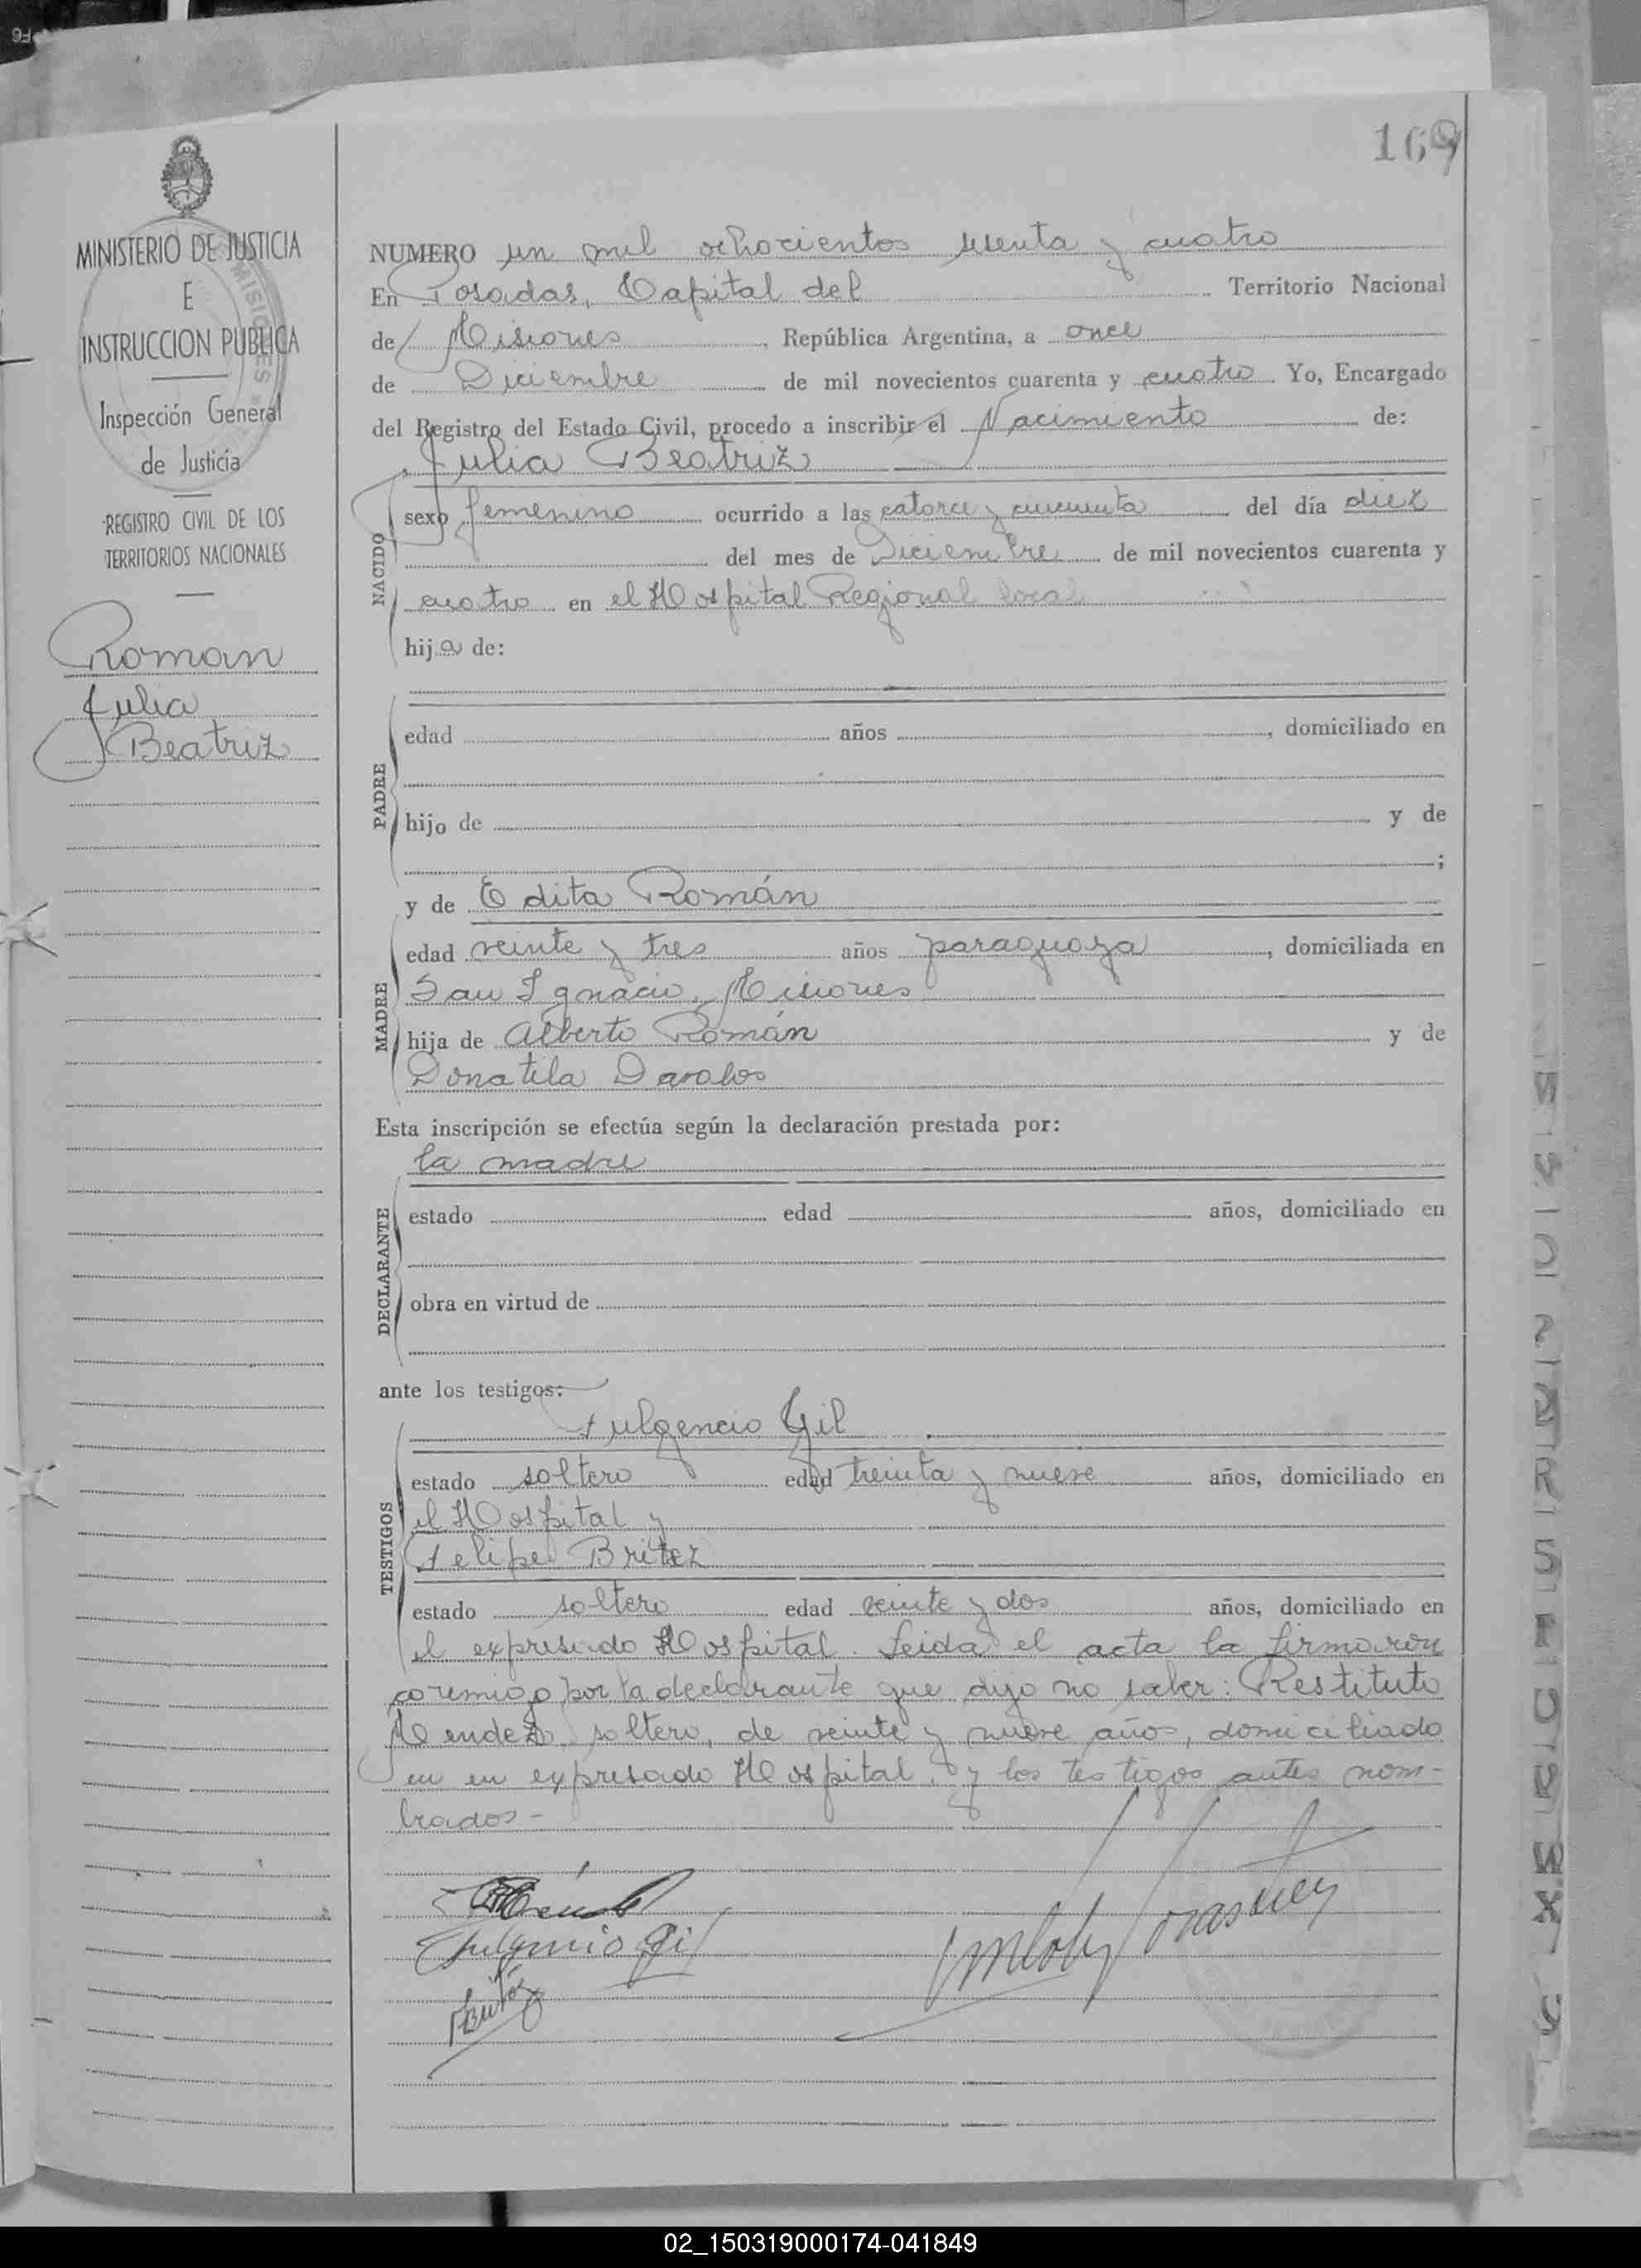 169
MINISTERIO DE JUSTICIA
E
INSTRUCCION PUBLICA
Inspección General
de Justicia
REGISTRO CIVIL DE LOS
TERRITORIOS NACIONALES
MISIONES
Roman
Julia
Beatriz
NUMERO un mil ochocientos sesenta y cuatro
En Posadas, Capital del Territorio Nacional
de Misiones, República Argentina, a once
de Diciembre de mil novecientos cuarenta y cuatro Yo, Encargado
del Registro del Estado Civil, procedo a inscribir el Nacimiento de:
Julia Beatriz
NACIDO
sexo femenino ocurrido a las catorce y cincuenta del día diez
del mes de Diciembre de mil novecientos cuarenta y
cuatro en el Hospital Regional local
hija de:
PADRE
edad años , domiciliado en
hijo de y de
;
y de Edita Román
MADRE
edad veinte y tres años paraguaya, domiciliada en
San Ignacio, Misiones
hija de Alberto Román y de
Donatila Davalos
Esta inscripción se efectúa según la declaración prestada por:
la madre
DECLARANTE
estado edad años, domiciliado en
obra en virtud de
ante los testigos:
Fulgencio Gil
TESTIGOS
estado soltero edad treinta y nueve años, domiciliado en
el Hospital y
Felipe Britez
estado soltero edad veinte y dos años, domiciliado en
el expresado Hospital. Leida el acta la firmaron
conmigo por la declarante que dijo no saber: Restituto
Mendez, soltero, de veinte y nueve años, domiciliado
en en expresado Hospital, y los testigos antes nom-
brados-
Fulgencio Gil
02_150319000174-041849